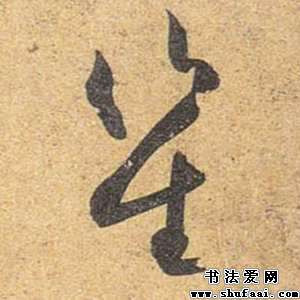 笙
书法爱网
www.shufaai.com